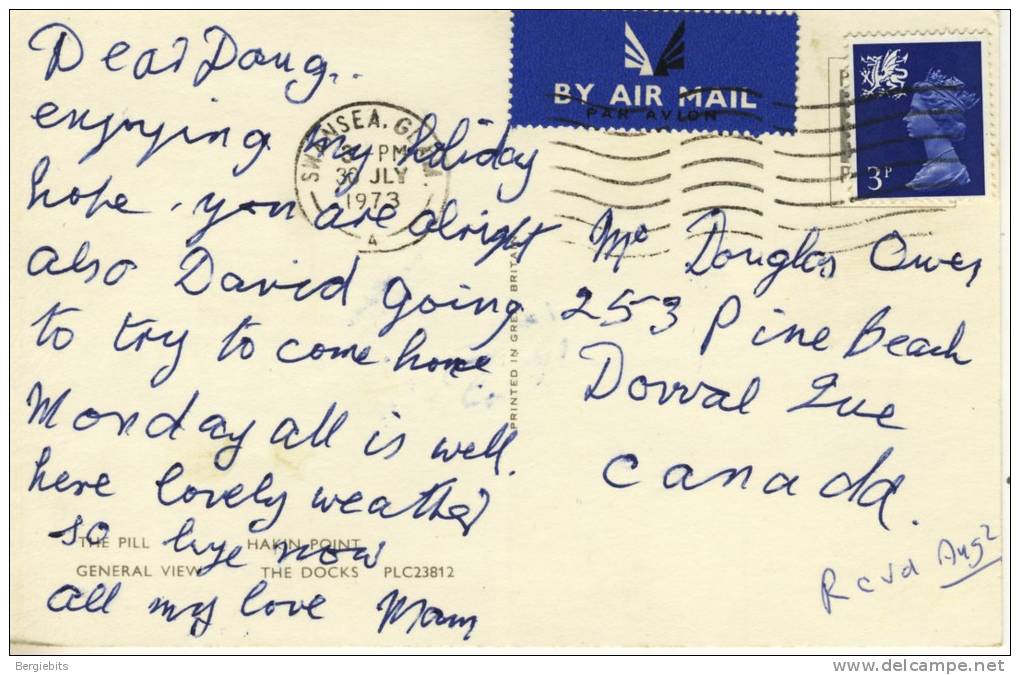 Dear Doug..
enjoying my holiday
hope. you are alright
also David going
to try to come home
Monday all is well.
here lovely weather
so bye now
all my love Mam
BY AIR MAIL
PAR AVION
3P
SWANSEA. GLAM.
PM
30 JLY
1973
A
Mr Douglas Owen
253 Pine Beach
Dorval Que
Canada.
Rcvd Aug 2
PRINTED IN GREAT BRITAIN
THE PILL HAKIN POINT
GENERAL VIEW THE DOCKS PLC23812
Bergiebits
www.delcampe.net